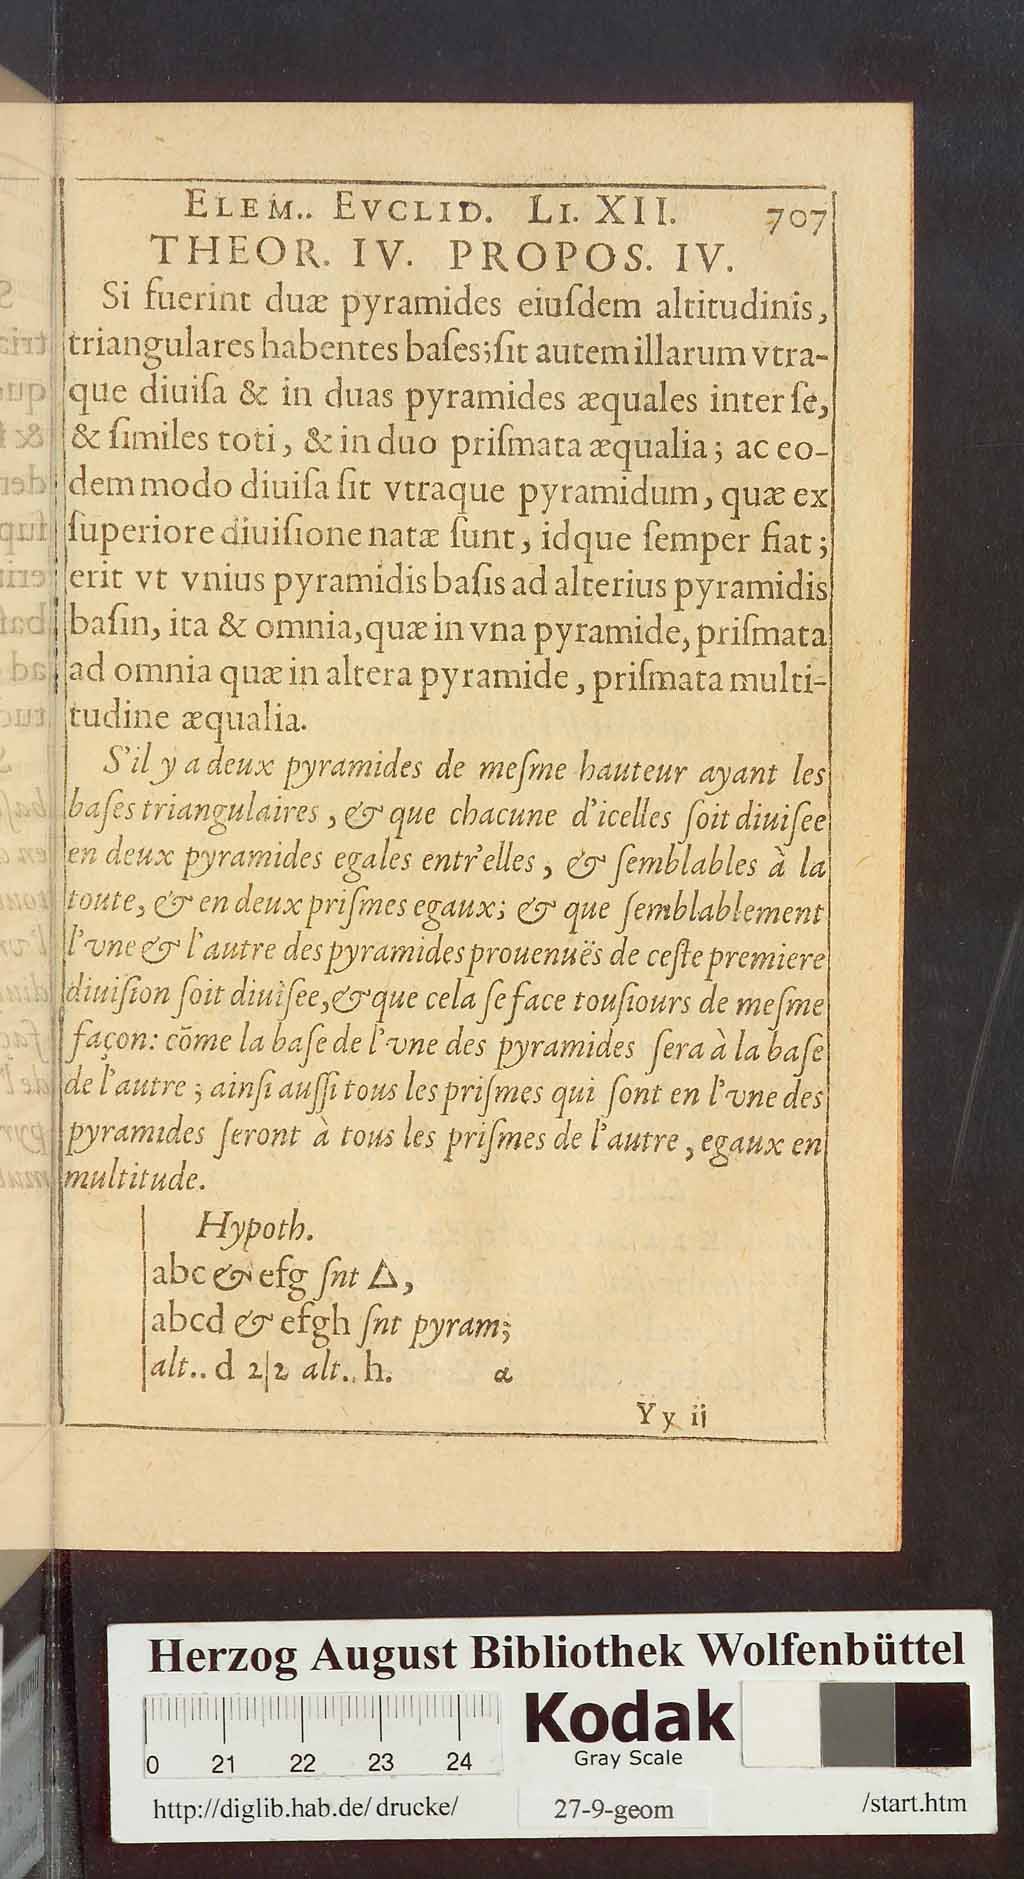 ELEM.. EVCLID. LI. XII. 707
THEOR. IV. PROPOS. IV.
Si fuerint duæ pyramides eiuſdem altitudinis,
triangulares habentes baſes; ſit autem illarum vtra-
que diuiſa & in duas pyramides æquales inter ſe,
& ſimiles toti, & in duo priſmata æqualia; ac eo-
dem modo diuiſa ſit vtraque pyramidum, quæ ex
ſuperiore diuiſione natæ ſunt, idque ſemper fiat;
erit vt vnius pyramidis baſis ad alterius pyramidis
baſin, ita & omnia, quæ in vna pyramide, priſmata
ad omnia quæ in altera pyramide, priſmata multi-
tudine æqualia.
S'il y a deux pyramides de meſme hauteur ayant les
baſes triangulaires, & que chacune d'icelles ſoit diuiſee
en deux pyramides egales entr'elles, & ſemblables à la
toute, & en deux priſmes egaux; & que ſemblablement
l'vne & l'autre des pyramides prouenuës de ceſte premiere
diuiſion ſoit diuiſee, & que cela ſe face touſiours de meſme
façon: cõme la baſe de l'vne des pyramides ſera à la baſe
de l'autre; ainſi auſſi tous les priſmes qui ſont en l'vne des
pyramides ſeront à tous les priſmes de l'autre, egaux en
multitude.
Hypoth.
abc & efg ſnt Δ,
abcd & efgh ſnt pyram;
alt.. d 2|2 alt.. h. α
Yy ij
Herzog August Bibliothek Wolfenbüttel
0 21 22 23 24
Kodak
Gray Scale
http://diglib.hab.de/drucke/ 27-9-geom /start.htm